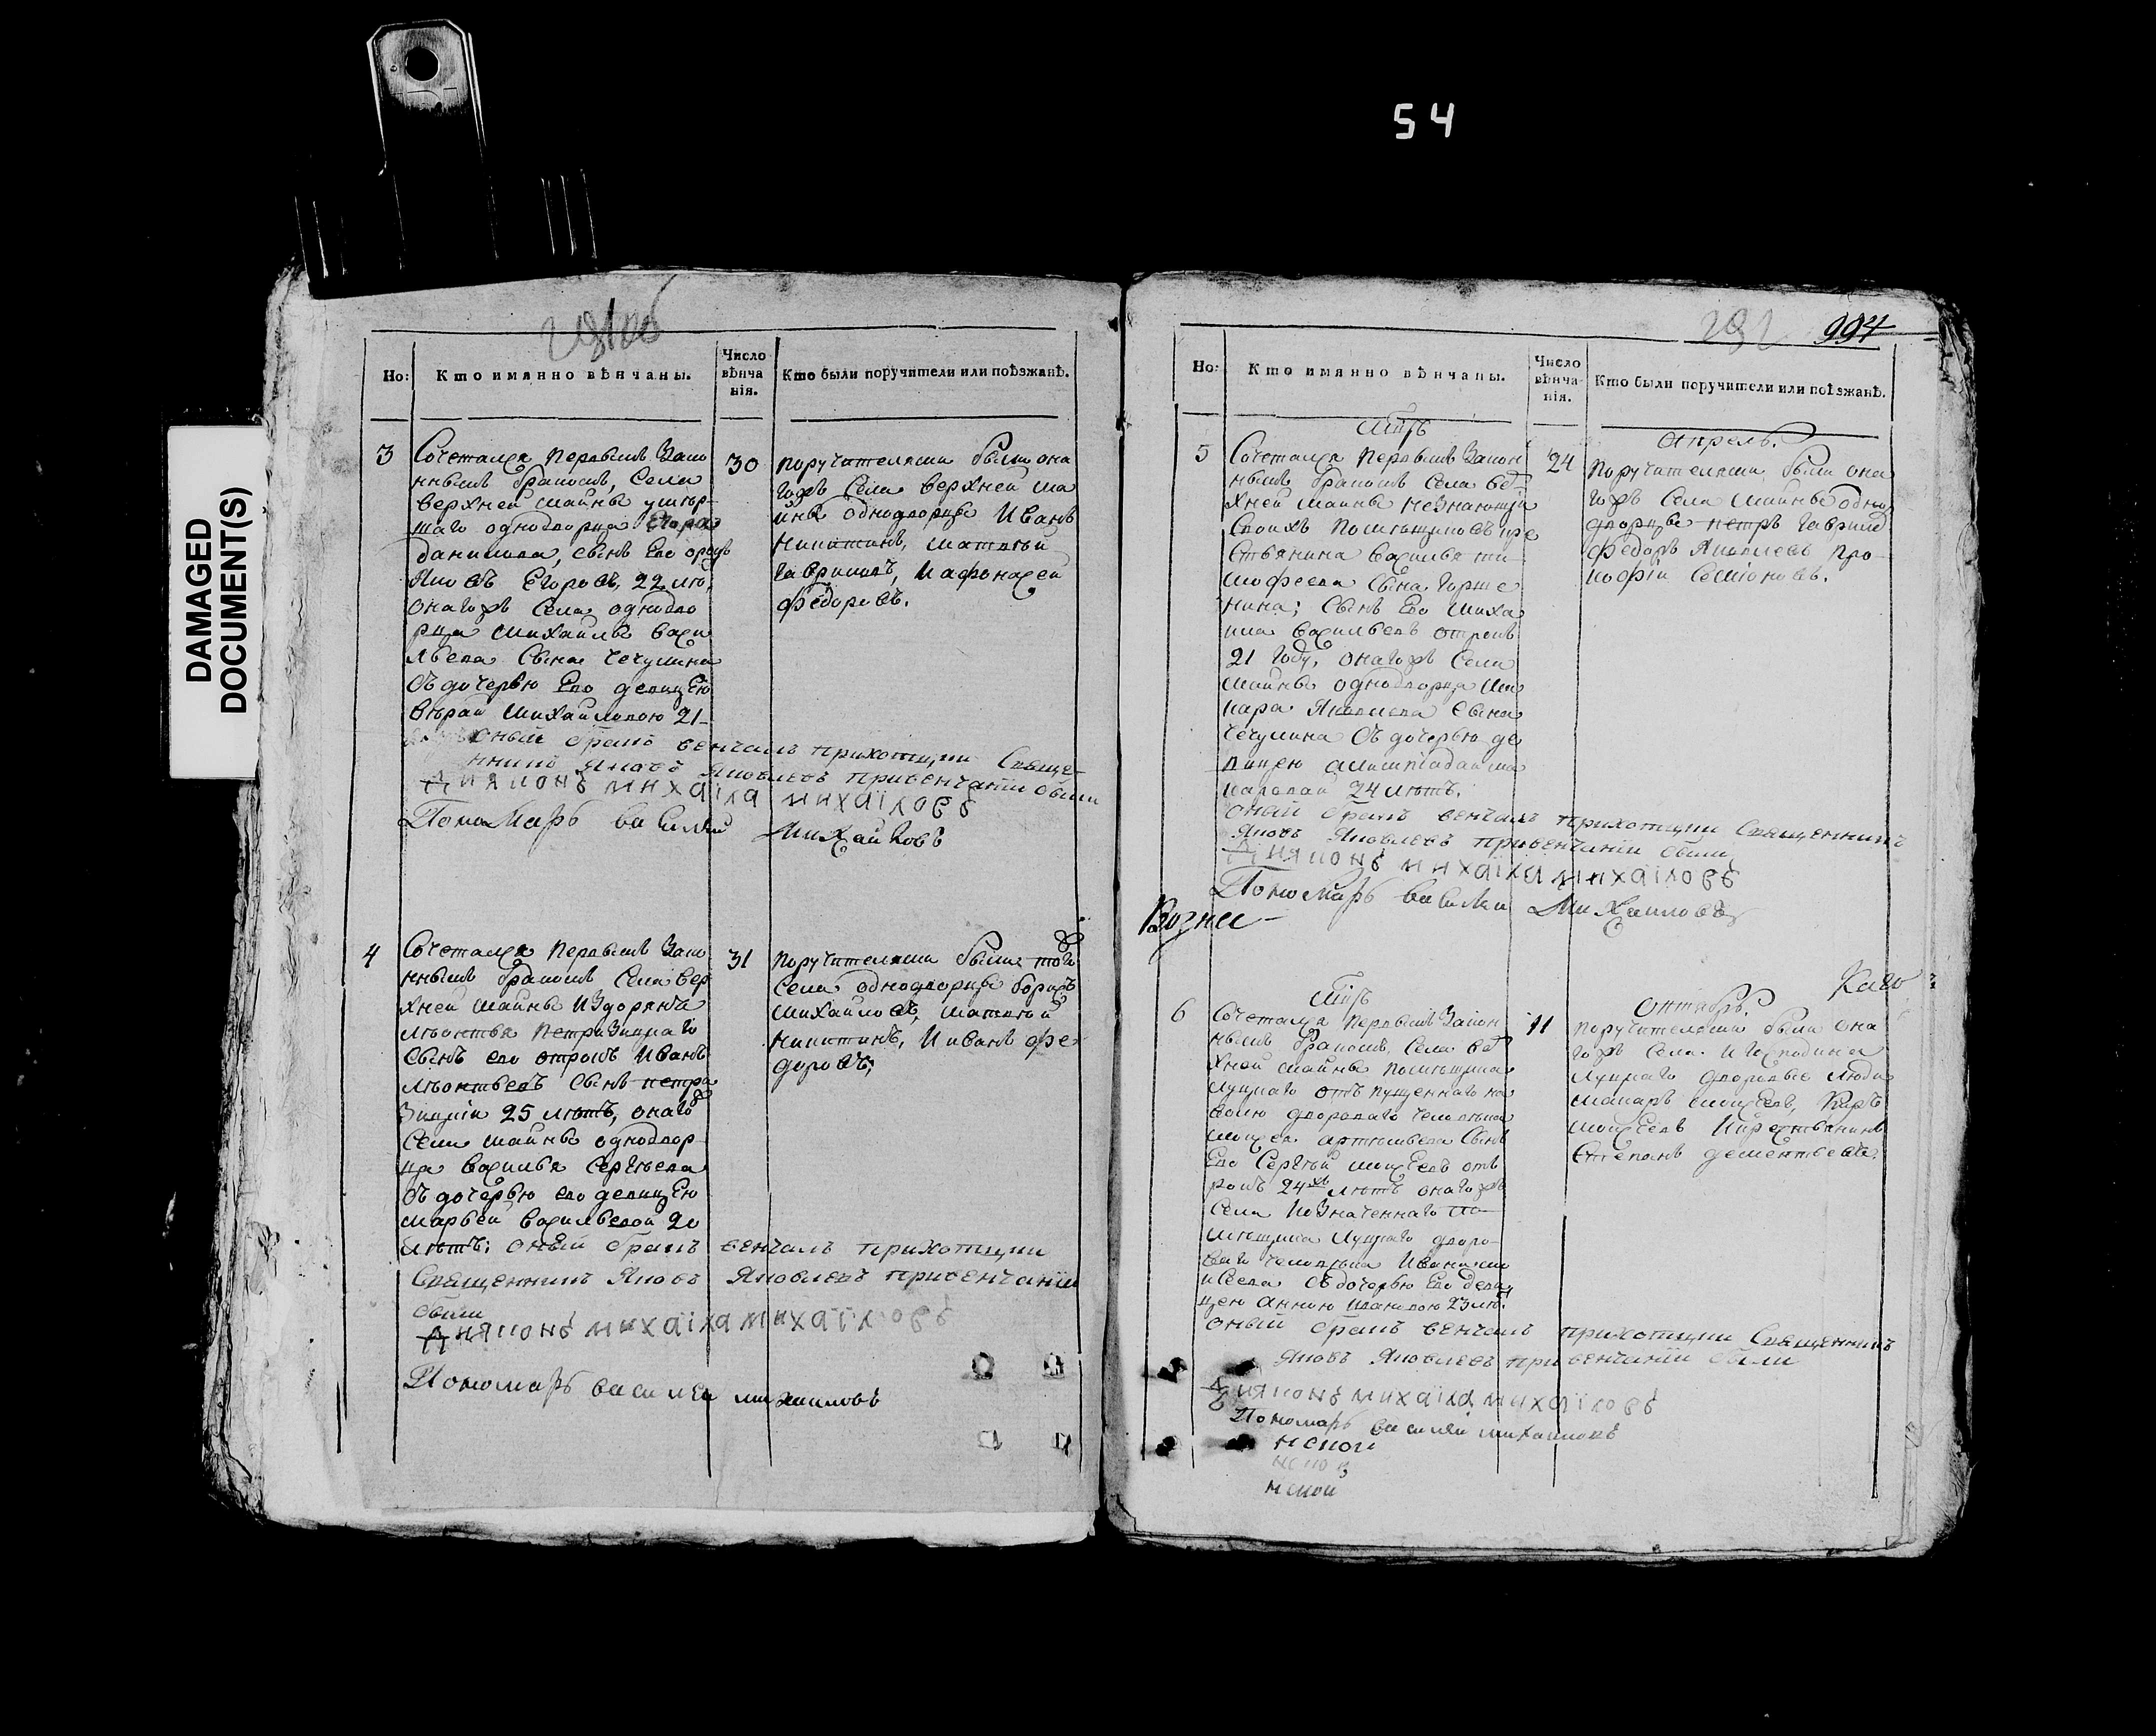 54
DAMAGED
DOCUMENT(S)
994
Но:
Кто имянно вѣнчаны.
Число
вѣнча
нія.
Кто были поручители или поѣзжанѣ.
3
Сочетался первымъ зако
ннымъ бракомъ, села
верхней майны умѣр-
шаго однодворца Егора
данилова, сынъ его
Яковъ Егоровъ, 22 лѣ,
онагожъ села однодво
рца михайлы васи
льева сына чечулина
съ дочерью его девицею
михайловою 21
оный бракъ венчалъ приходцкии свяще-
нникъ Яковъ Яковлевъ привенчании были
Дияконъ михаіла михаіловъ
Пономарь василей Михайловъ
30
поручителями были она
гожъ села верхней ма
йны однодворцы Иванъ
никитинъ, матвѣй
гавриловъ, и афонасей
федоровъ.
4
Сочетался первымъ зако
ннымъ бракомъ села вер
хней майны
сынъ его отрокъ Иванъ
леонтьевъ сынъ петро
25 летъ, онагожъ
села майны однодвор-
ца василья сергѣева
съ дочерью его девицею
марьей васильевой 20
летъ: оный бракъ венчалъ приходцкии
Священникъ Яковъ Яковлевъ привенчании
были
Дияконъ михаіла михаіловъ
Пономарь василеи михаиловъ
31
поручителями были тогожъ
села однодворцы борисъ
михайловъ, матвѣй
никитинъ, и иванъ фе
доровъ;
Но:
Кто имянно вѣнчаны.
Число
вѣнча-
нія.
Кто были поручители или поѣзжанѣ.
апрель.
5
Сочетался первымъ закон
нымъ бракомъ села ве
хней майны
своихъ помѣщиковъ кре
стьянина василья ти
мофеева сына горше
нина; сынъ его миха
ила васильевъ отрокъ
21 году, онагожъ села
майны однодворца ма
кара Яковлева сына
чечулина съ дочерью де
вицею ма
каровой 24 летъ.
оный бракъ венчалъ приходцкии Священникъ
Яковъ Яковлевъ привенчании были
Дияконъ михаіла михаіловъ
Пономарь василеи Михаиловъ
24
поручителями были она
гожъ села майны одно
дворцы петръ гаврилов
федоръ Яковлевъ про-
кофіи семіоновъ.
6
октябрь.
Сочетался первымъ закон
нымъ бракомъ, села ве
хней майны помѣщика
отъ пущеннаго на
волю двороваго человѣка
моисея артемьева сынъ
его Сергѣй моисѣевъ от
рокъ 24хъ летъ онагожъ
села и означеннаго по
мѣщика дворо-
ваго человѣка Ивана
съ дочерью его деви
цею анною ивановою 23 ле.
оный бракъ венчалъ приходцкии Священникъ
Яковъ Яковлевъ привенчании были
Дияконъ михаіла михаіловъ
Пономарь василеи михаиловъ
11
поручителями были она
гожъ села и господина
дворовые люди
макаръ моисѣевъ,
моисѣевъ и крестьянинъ
Степанъ дементьевъ.